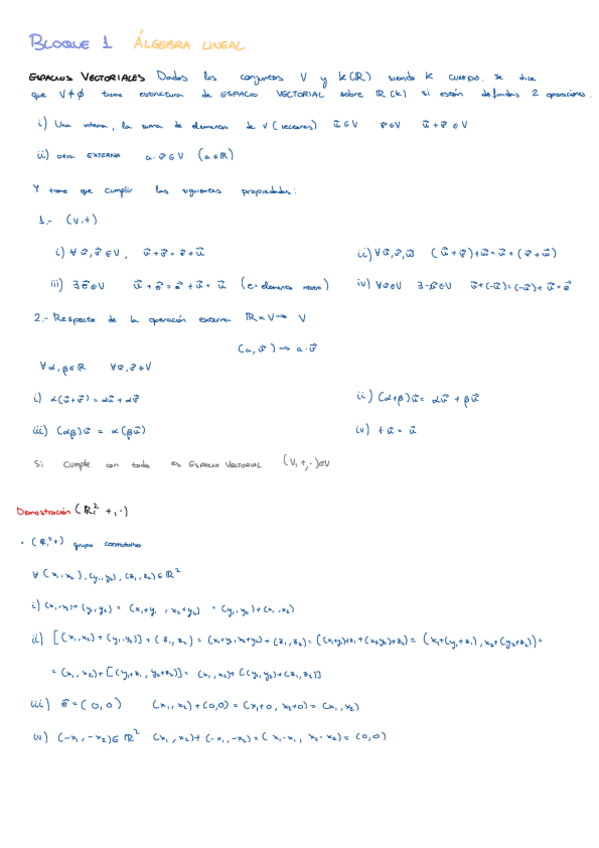 BLOQUE 1 ÁLGEBRA LINEAL
ESPACIOS VECTORIALES Dados los conjuntos V y K(ℝ) siendo K cuerpo. se dice
que V≠∅ tiene estructura de ESPACIO VECTORIAL sobre ℝ(k) si están definidas 2 operaciones.
i) Una interna, la suma de elementos de V (vectores) u⃗∈V v⃗∈V u⃗+v⃗∈V
ii) otra EXTERNA a·v⃗∈V (a∈ℝ)
Y tiene que cumplir las siguientes propiedades:
1.- (V,+)
i) ∀u⃗,v⃗∈V, u⃗+v⃗=v⃗+u⃗ ii) ∀u⃗,v⃗,w⃗ (u⃗+v⃗)+w⃗=u⃗+(v⃗+w⃗)
iii) ∃e⃗∈V u⃗+e⃗=e⃗+u⃗=u⃗ (e=elemento neutro) iv) ∀u⃗∈V ∃-u⃗∈V u⃗+(-u⃗)=(-u⃗)+u⃗=e⃗
2.- Respecto de la operación externa ℝxV→V
(a,v⃗)→a·v⃗
∀α,β∈ℝ ∀u⃗,v⃗∈V
i) α(u⃗+v⃗)=αu⃗+αv⃗ ii) (α+β)u⃗=αu⃗+βu⃗
iii) (αβ)u⃗=α(βu⃗) iv) 1u⃗=u⃗
Si cumple con todo es ESPACIO VECTORIAL (V,+,·)eV
Demostración (ℝ², +,·)
· (ℝ²,+) grupo conmutativo
∀(x₁,x₂),(y₁,y₂),(z₁,z₂)∈ℝ²
i) (x₁,x₂)+(y₁,y₂)=(x₁+y₁, x₂+y₂)=(y₁,y₂)+(x₁,x₂)
ii) [(x₁,x₂)+(y₁,y₂)]+(z₁,z₂)=(x₁+y₁,x₂+y₂)+(z₁,z₂)=((x₁+y₁)+z₁,(x₂+y₂)+z₂)=(x₁+(y₁+z₁),x₂+(y₂+z₂))=
=(x₁,x₂)+[(y₁+z₁,y₂+z₂)]=(x₁,x₂)+[(y₁,y₂)+(z₁,z₂)]
iii) e⃗=(0,0) (x₁,x₂)+(0,0)=(x₁+0,x₂+0)=(x₁,x₂)
iv) (-x₁,-x₂)∈ℝ² (x₁,x₂)+(-x₁,-x₂)=(x₁-x₁, x₂-x₂)=(0,0)